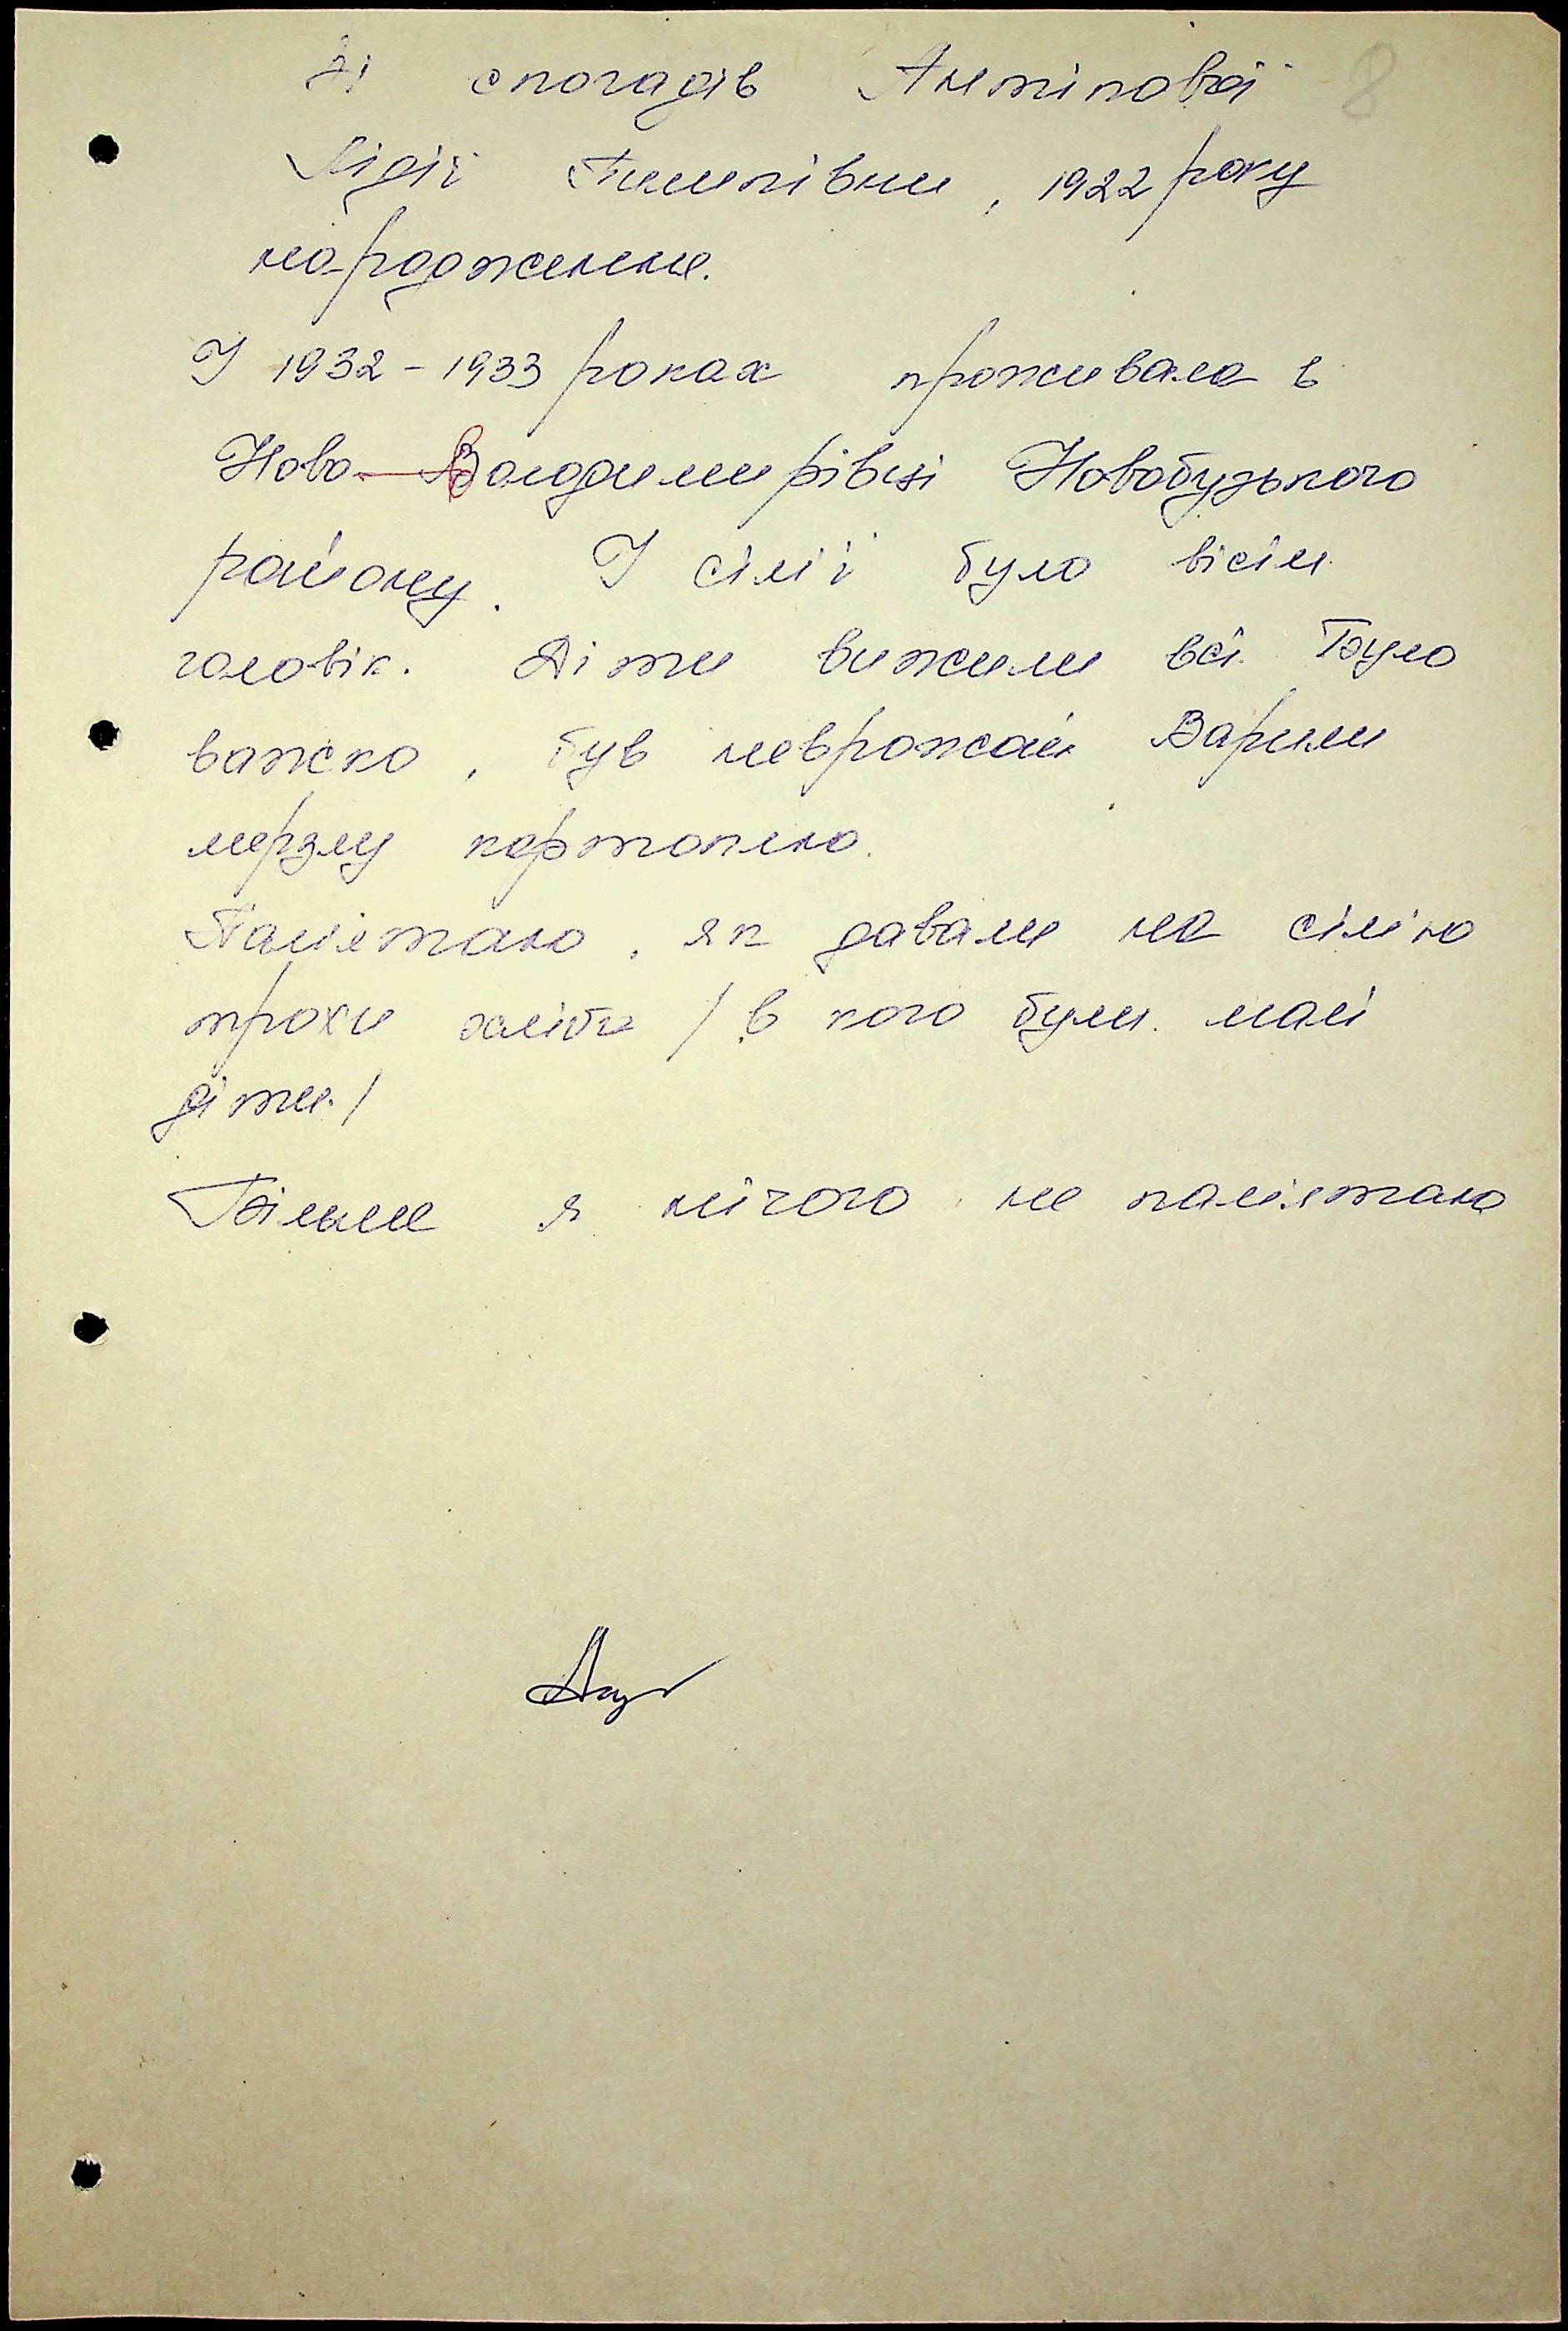 Зі спогадів Антіпової 8
Лідії Пилипівни, 1922 року
народження.
У 1932-1933 роках проживала в
Ново-Володимирівці Новобузького
району. У сім'ї було вісім
чоловік. Діти вижили всі. Було
важко, був неврожай Варили
мерзлу картоплю.
Пам'ятаю, як давали на сім'ю
трохи хліба / в кого були малі
діти/
Більше я нічого не пам'ятаю